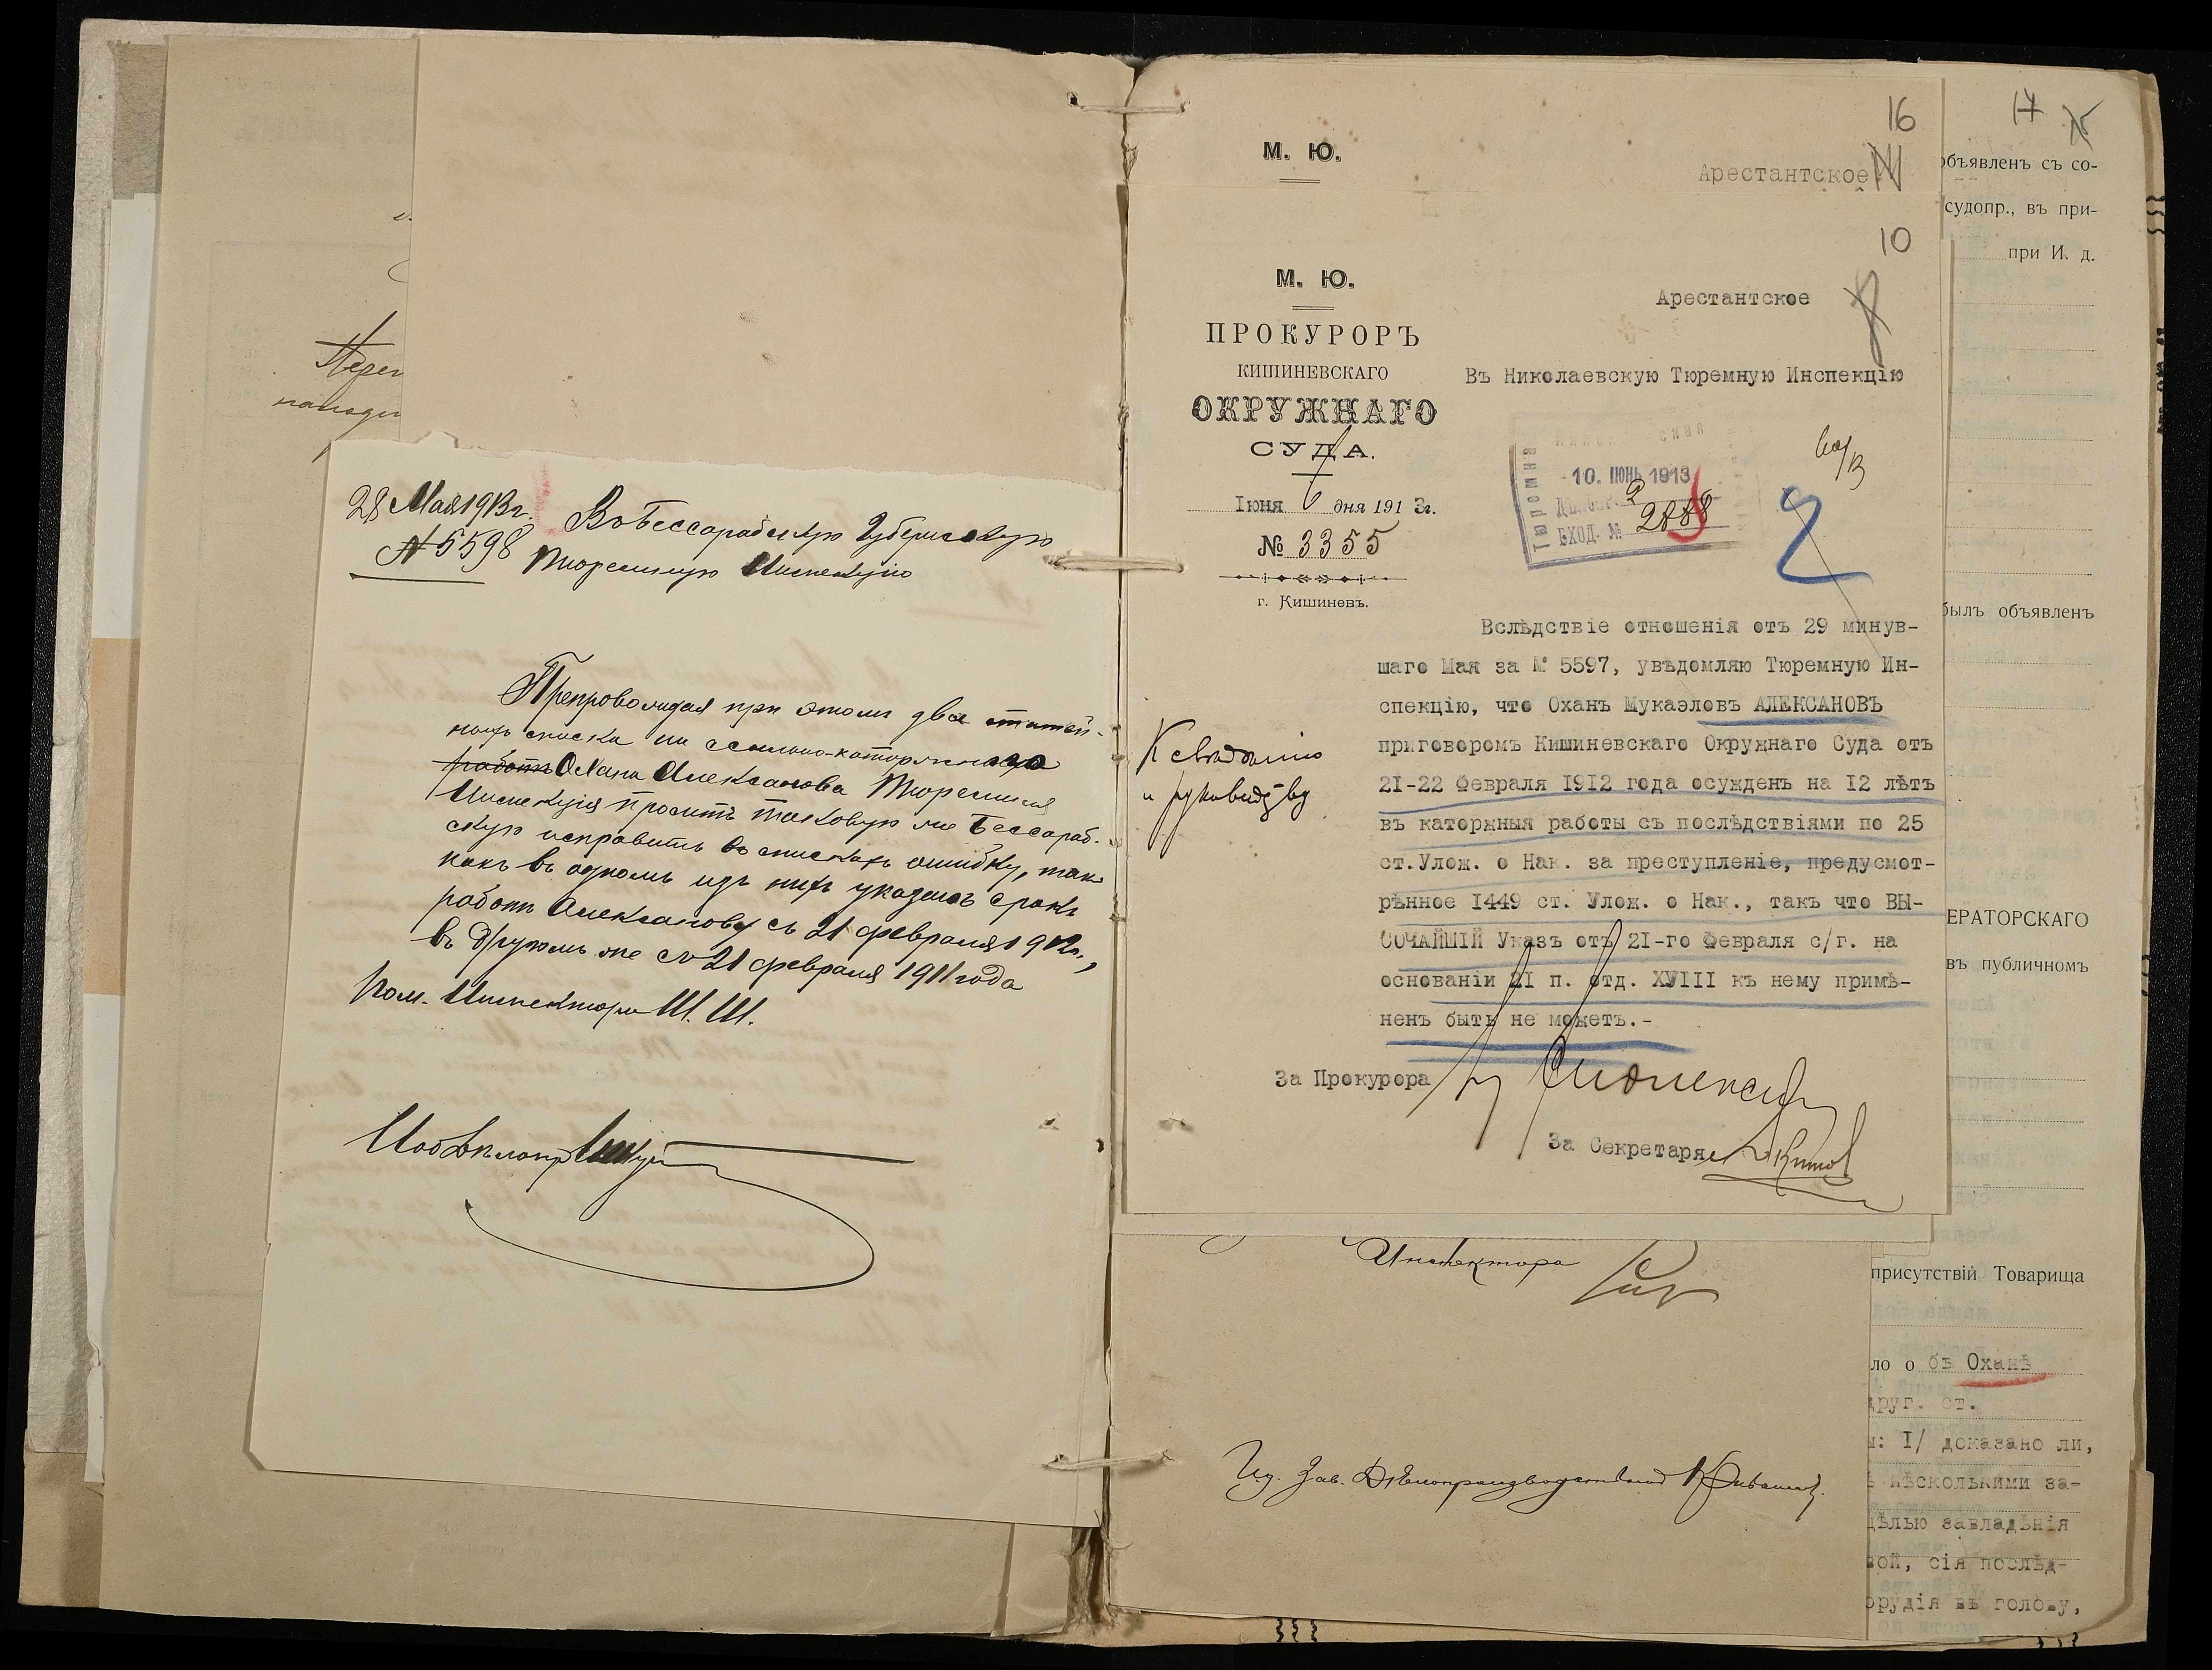 Перег
находи
28 Мая 1913 г.
№ 5598
Въ Бессарабскую Губернскую
Тюремную Инспекцію
Препровождая при этомъ два статей-
ныхъ списка на ссыльно-каторжнаго
работъ Охана Алексанова Тюремная
Инспекція проситъ таковую же Бессараб-
скую исправить въ спискахъ ошибку, такъ
какъ въ одномъ изъ нихъ указанъ срокъ
работъ Алексанову съ 21 февраля 1912 г.,
въ другомъ же съ 21 февраля 1911 года
Пом. Инспектора Ш. Ш.
16
М. Ю.
Арестантское
10
М. Ю.
Арестантское
ПРОКУРОРЪ
КИШИНЕВСКАГО
ОКРУЖНАГО
СУДА.
Іюня 6 дня 191 3г.
№ 3355
г. Кишиневъ.
Въ Николаевскую Тюремную Инспекцію
10. ІЮНЬ 1913
ВХОД. № 2888
2
Вслѣдствіе отношенія отъ 29 минув-
шаго Мая за № 5597, увѣдомляю Тюремную Ин-
спекцію, что Оханъ Мукаэловъ АЛЕКСАНОВЪ
приговоромъ Кишиневскаго Окружнаго Суда отъ
21-22 Февраля 1912 года осужденъ на 12 лѣтъ
въ каторжныя работы съ послѣдствіями по 25
ст.Улож. о Нак. за преступленіе, предусмот-
рѣнное 1449 ст. Улож. о Нак., такъ что ВЫ-
СОЧАЙШІЙ Указъ отъ 21-го Февраля с/г. на
основаніи 21 п. отд. ХУІІІ къ нему примѣ-
ненъ быть не можетъ.-
К свѣдѣнію
и руководству
За Прокурора
За Секретаря
Инспектора
Ид. Зав. Дѣлопроизводствомъ
17
объявленъ съ со-
судопр., въ при-
при И. д.
былъ объявленъ
ЕРАТОРСКАГО
въ публичномъ
присутствій Товарища
ло о бъ Оханѣ
друг. ст.
ы: I/ доказано ли,
нѣсколькими за-
цѣлью завладѣнія
вой, сія послѣд-
орудія въ голову,